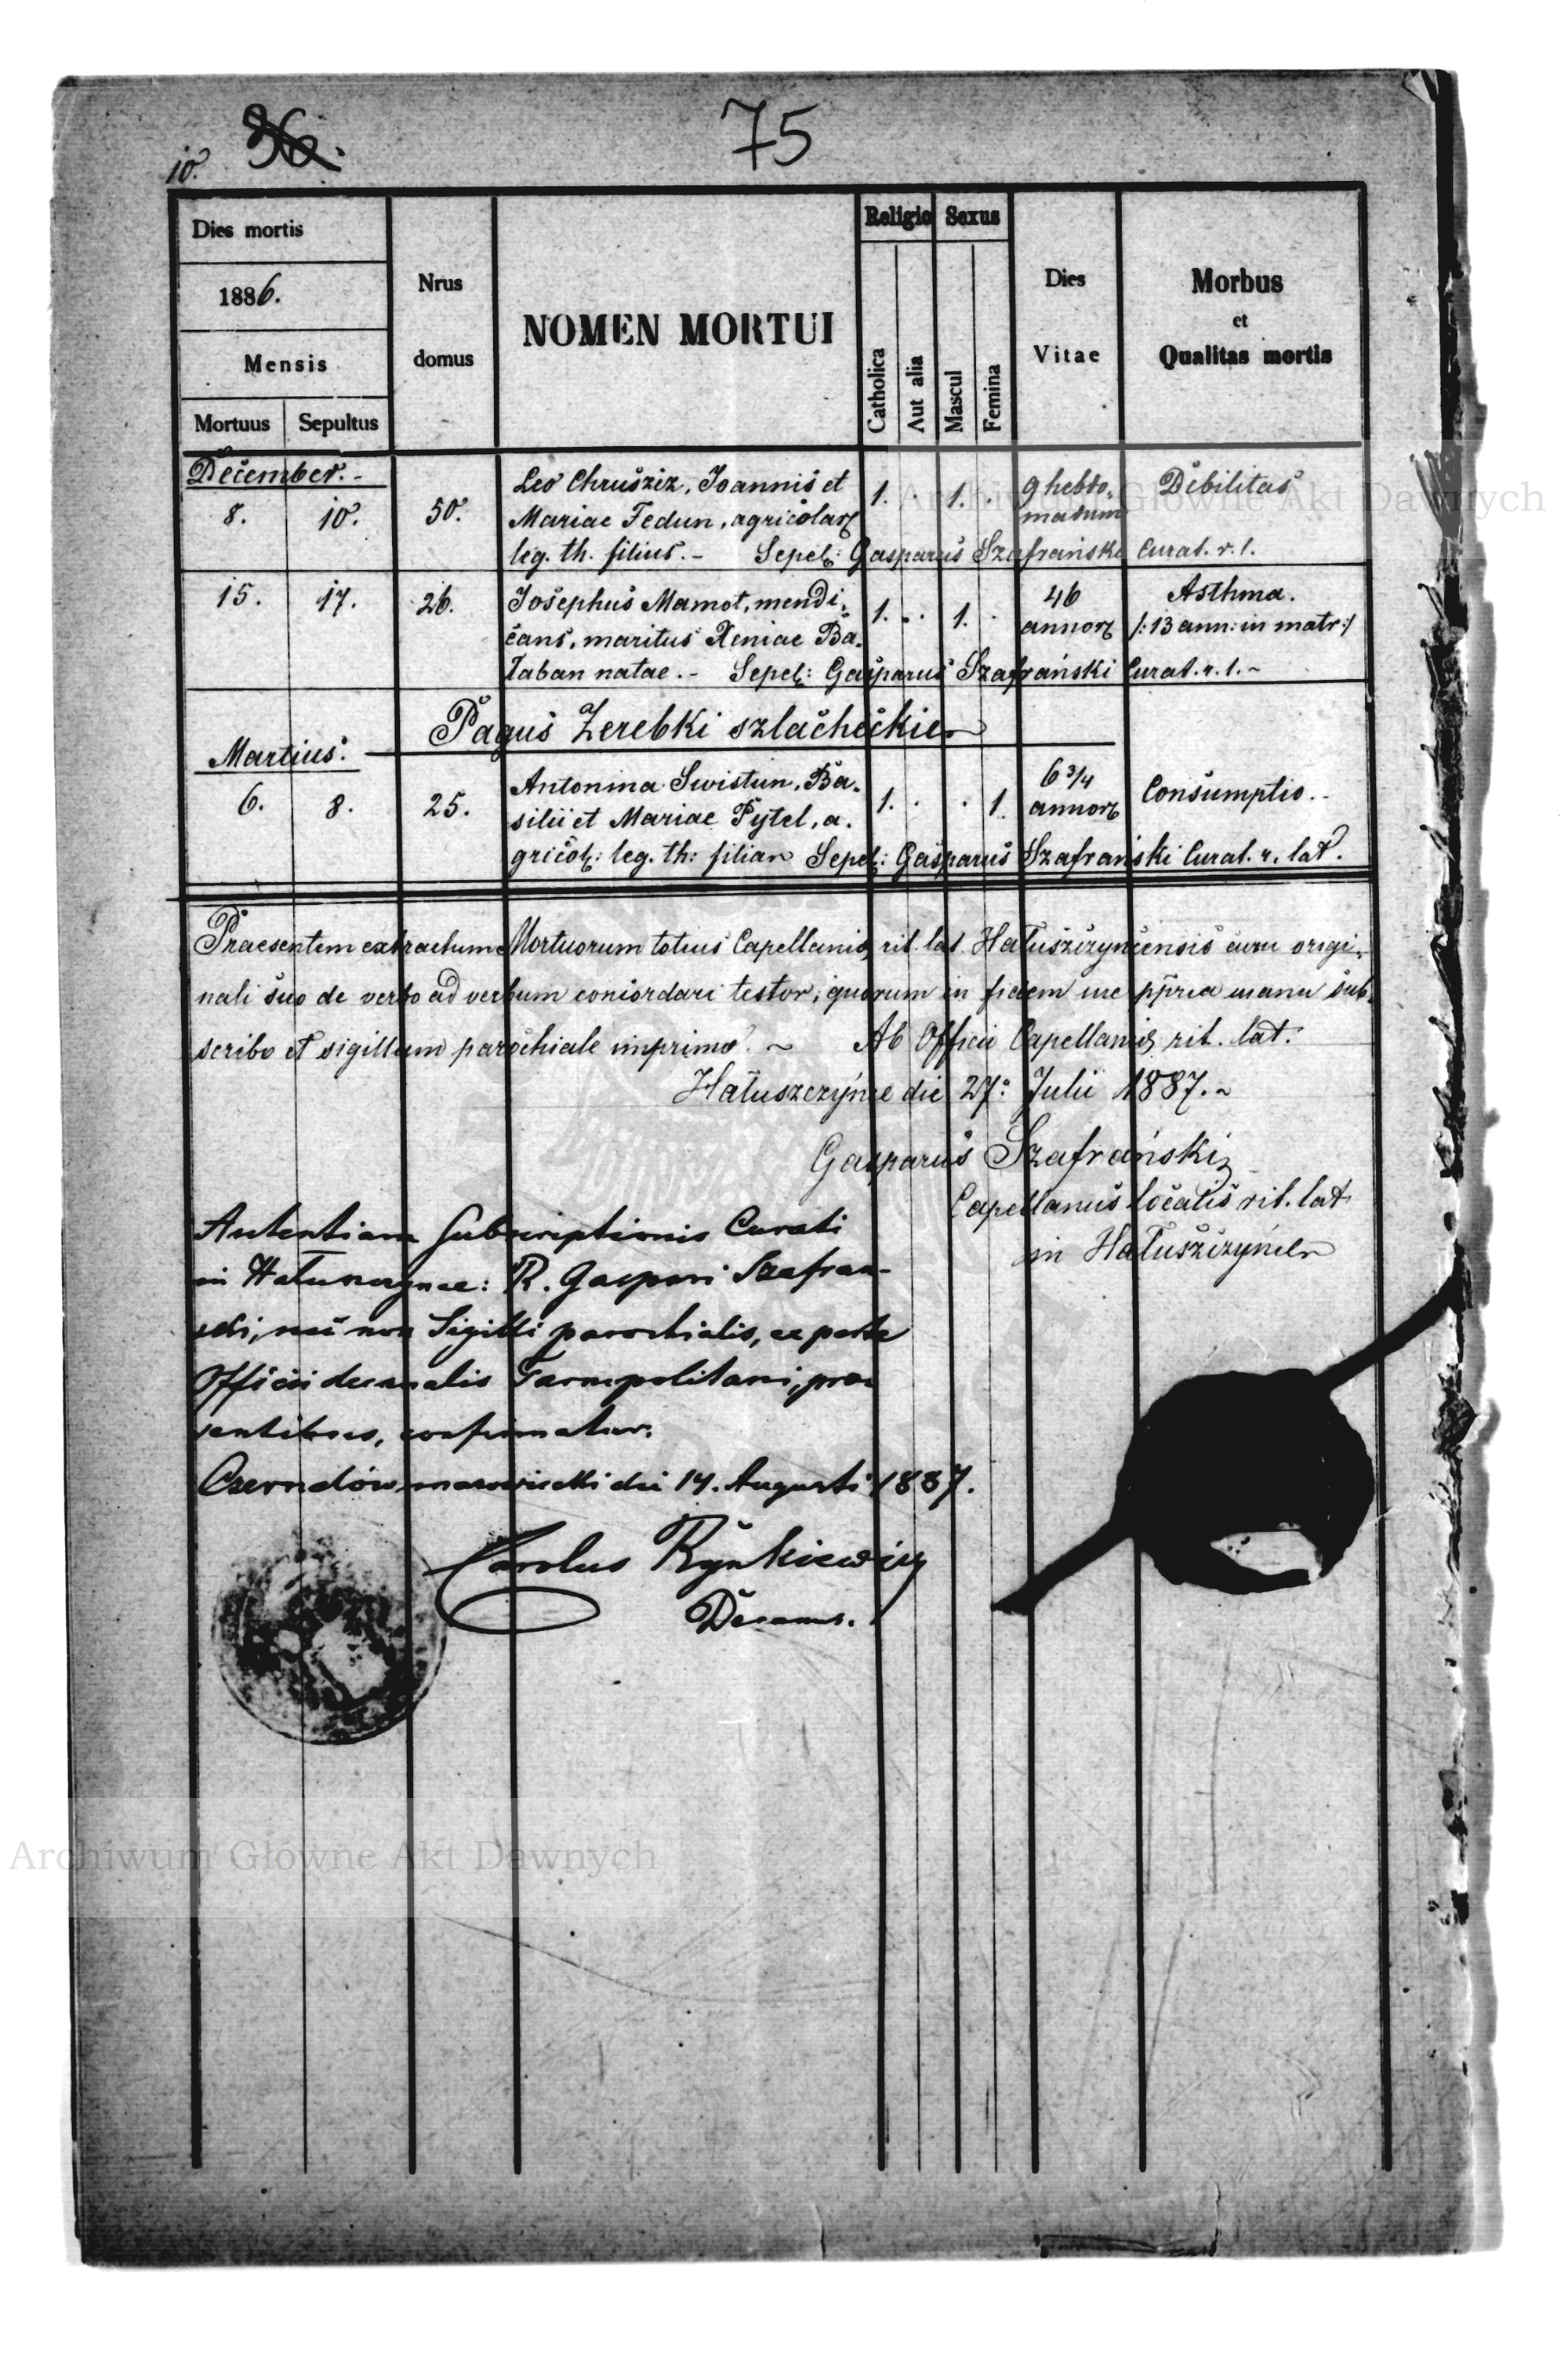 10. 36.
75
Dies mortis
1886.
Mensis
Mortuus Sepultus
Nrus
domus
NOMEN MORTUI
Religio
Catholica
Aut alia
Sexus
Mascul
Femina
Dies
Vitae
Morbus
et
Qualitas mortis
December.-
8. 10. 50. Leo Chruściz, Joannis et 1. . 1. . 9 hebdo- Debilitas
Mariae Fedun, agricolar madum
leg. th. filius.- Sepel: Gasparus Szafrański Curat. r. l.
15. 17. 26. Josephus Mamot, mendi- 1. . 1. . 46 Asthma.
cans, maritus Xeniae Ba- annor /: 13 ann: in matr:/
łaban natae.- Sepel: Gasparus Szafrański Curat. r. l.~
Pagus Zerebki szlacheckie
Martius.
6. 8. 25. Antonina Swistun, Ba- 1. . . 1. 6 3/4 Consumptio.-
silii et Mariae Pytel, a- annor
gricol: leg. th: filia Sepel: Gasparus Szafrański Curat. r. lat.
Praesentem extractum Mortuorum totius Capellaniae rit. lat. Hałuszczyncensis cum origi-
nali suo de verbo ad verbum concordari testor, quorum in fidem me ppria manu sub-
scribo et sigillum parochiale imprimo. ~ Ab Officii Capellaniae rit. lat.
Hałuszczyńce die 27. Julii 1887.~
Gasparus Szafrański
Capellanus localis rit. lat
in Hałuszczyńce
Autentiam Subscriptionis Curati
in Hałuszczynce: R. Gaspari Szafrań-
ski, nec non Sigilli parochialis, ex parte
Officii decanalis Tarnopolitani, prae-
sentibus, confirmatur.
Czernelów mazowiecki die 14. Augusti 1887.
Carolus Rynkiewicz
Decanus.
Archiwum Główne Akt Dawnych
Archiwum Główne Akt Dawnych